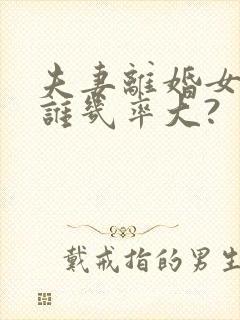 夫妻離婚女
誰幾率大?
戴戒指的男生